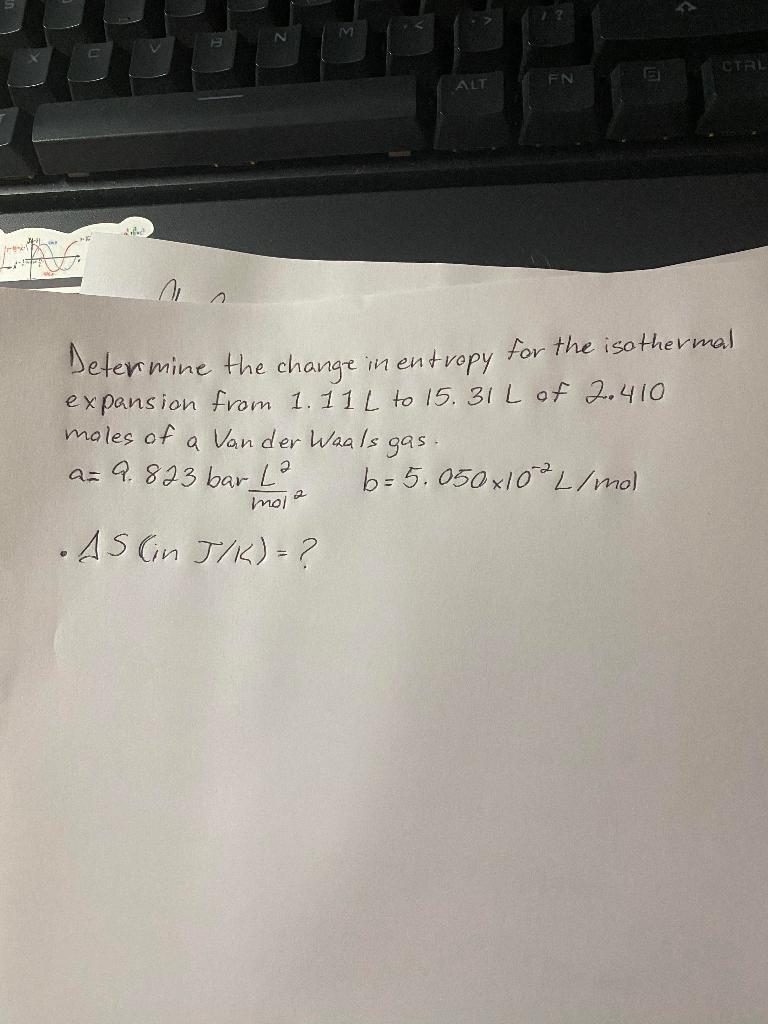 X C V B N M < . > / ?
ALT FN CTRL
Determine the change in entropy for the isothermal
expansion from 1.11 L to 15.31 L of 2.410
moles of a Van der Waals gas.
a= 9.823 bar L²/mol² b= 5.050x10⁻² L/mol
• ΔS (in J/K) = ?